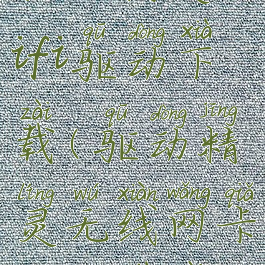 qū dòng xià
ifi驱动下
zài qū dòng jīng
载(驱动精
líng wú xiàn wǎng qiǎ
灵无线网卡